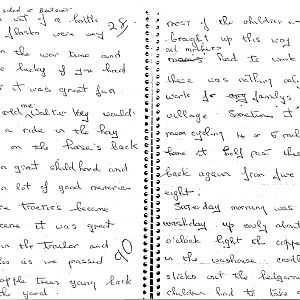 out of a bottle 28
flasks were very
the war time and
lucky if you had
it was great fun.
old me Walter Key would
a ride in the hay
on the horse's back
a great childhood and
a lot of good memories
tractors became
it was great
in the trailer and
as we passed
apple trees going back
the yard.
most of the children
brought up this way
all mothers had to work
there was nothing only
work for familys
village. Sometimes it
cycling 4 or 5
at half past
back again from five
eight.
Saturday morning was
washday up early about
o'clock light the copper
in the washouse.
sticks out the hedgerow
children had to take